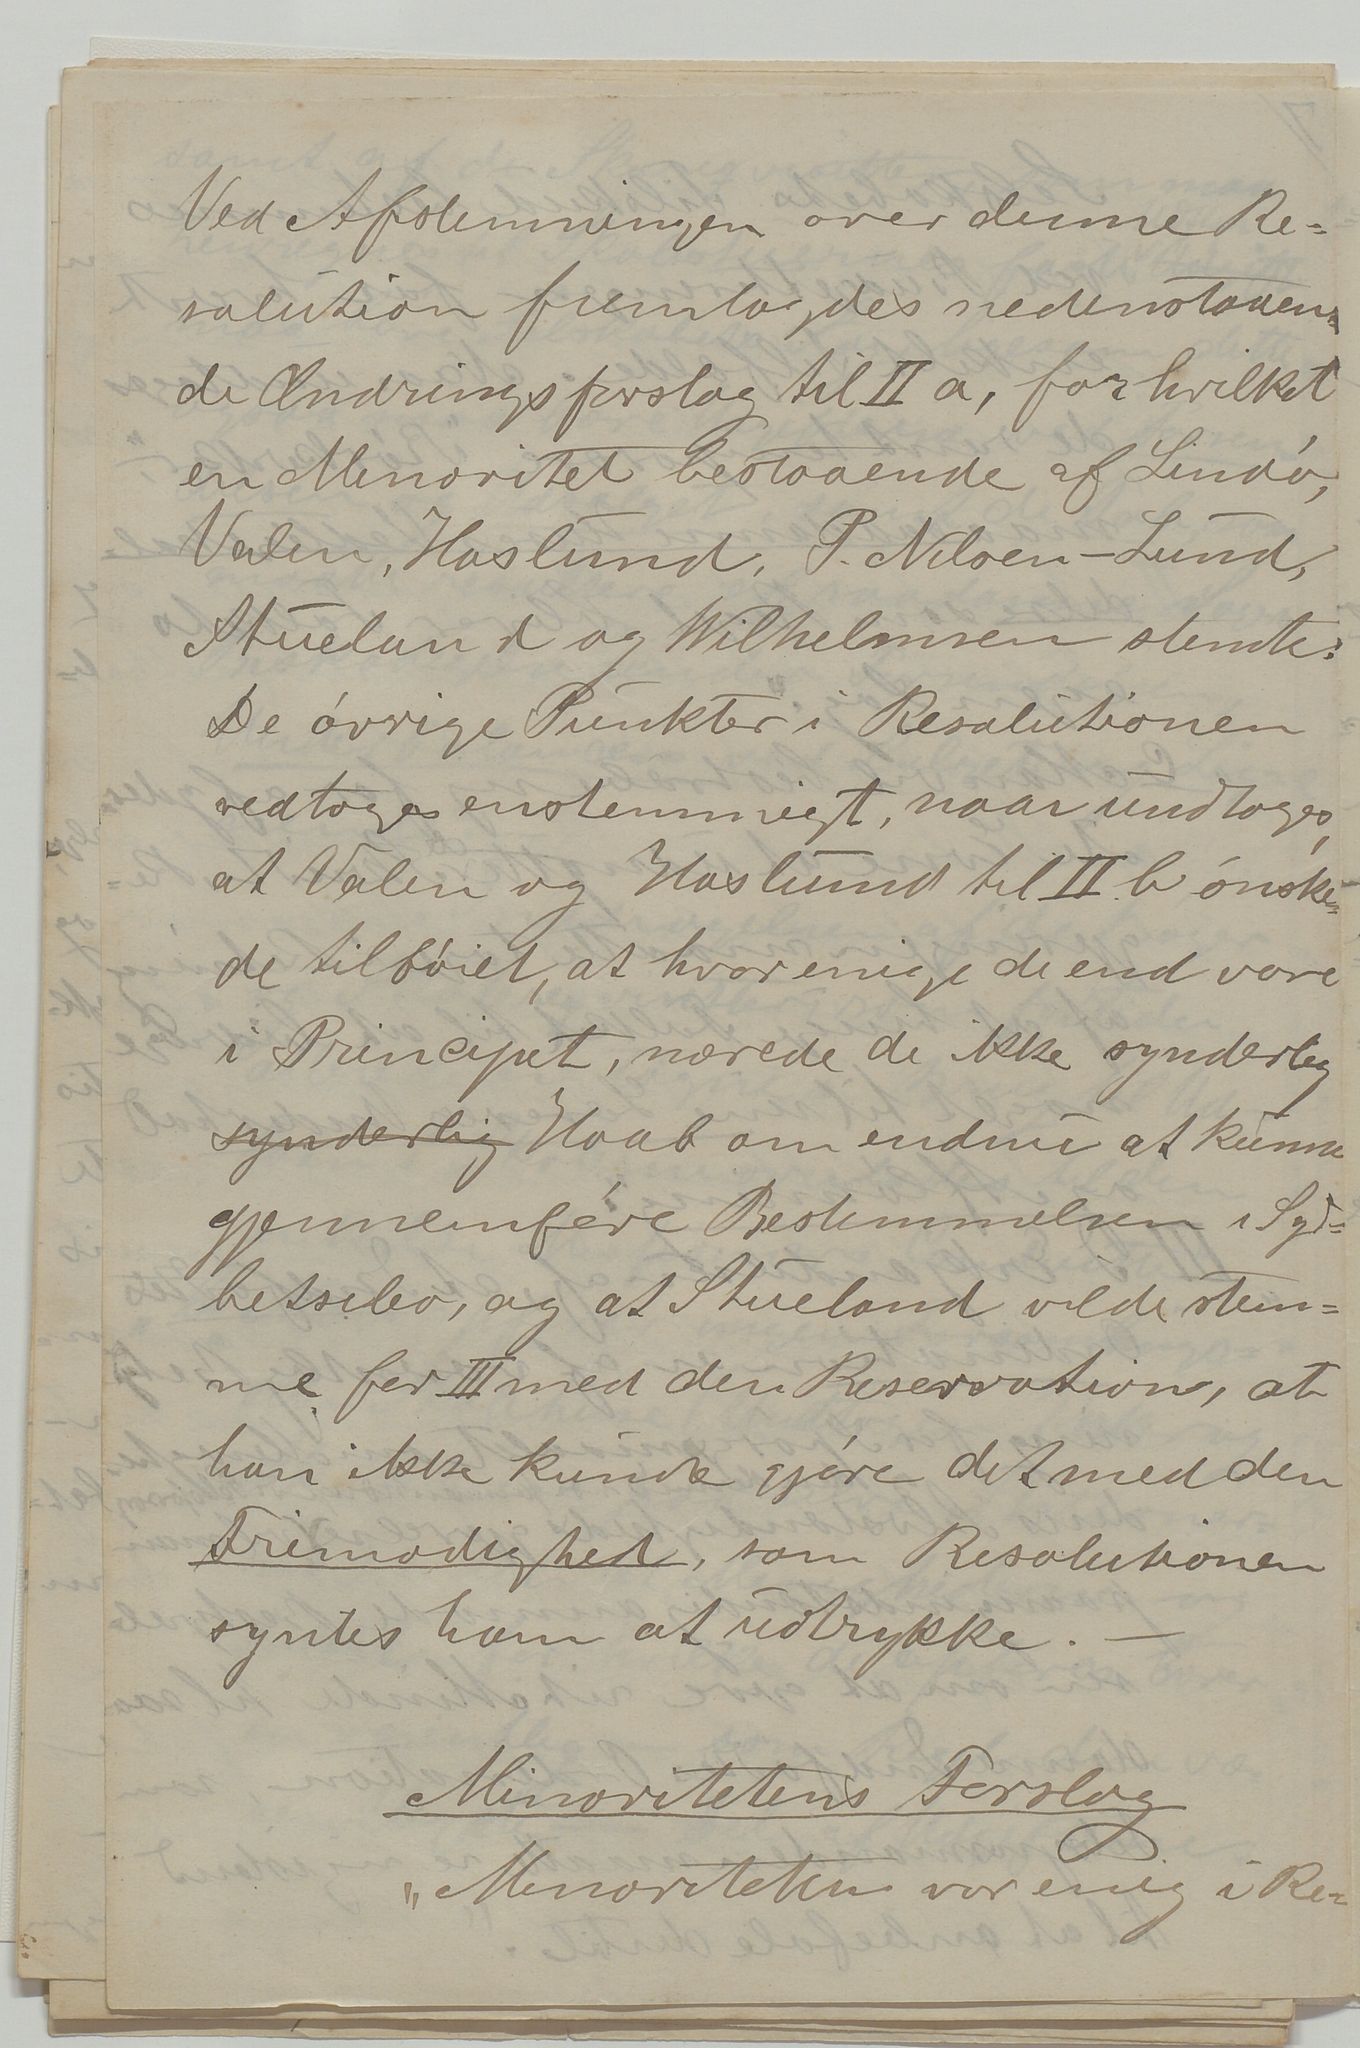 Ved Afstemningen over denne Re-
solution fremlagdes nedenstaaen-
de Ændringsforslag til II a, for hvilket
en Minoritet bestaaende af Lindø,
Valen, Haslund, P. Nilsen-Lund,
Stueland og Wilhelmsen stemte:
De øvrige Punkter i Resolutionen
vedtoges enstemmigt, naar undtoges,
at Valen og Haslund til II. b ønske-
de tilføiet, at hvor enige de end vare
i Principet, nærede de ikke synderlig
synderlig Haab om endnu at kunne
gjennemføre Bestemmelsen i Syd-
betsileo, og at Stueland vilde stem-
me for III med den Reservation, at
han ikke kunde gjøre det med den
Frimodighed, som Resolutionen
syntes ham at udtrykke. —
Minoritetens Forslag
„Minoriteten var enig i Re-